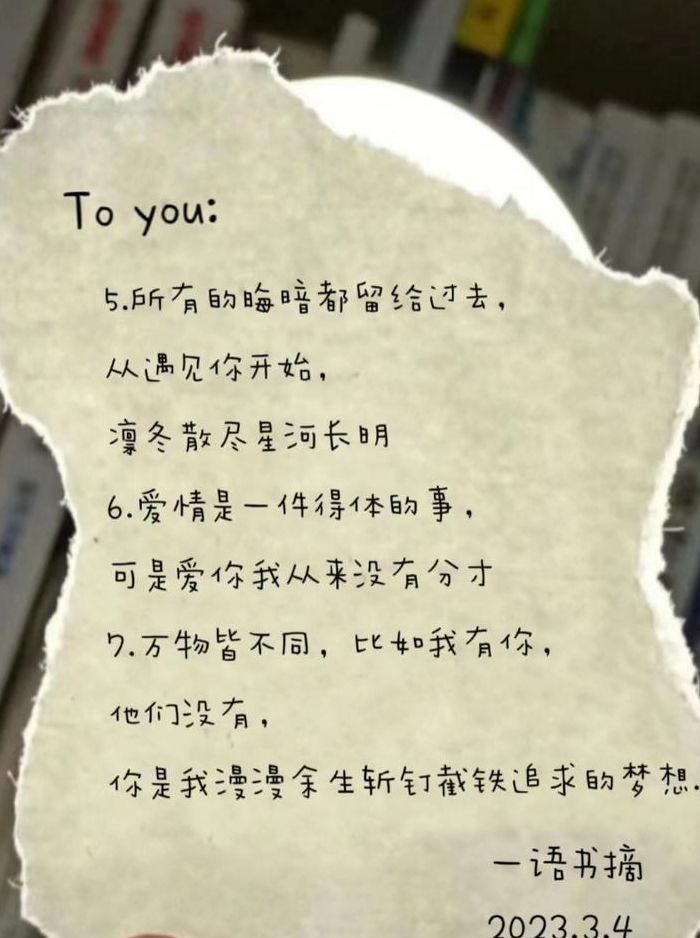 To you:
5.所有的晦暗都留给过去，
从遇见你开始，
凛冬散尽星河长明
6.爱情是一件得体的事，
可是爱你我从来没有分寸
7.万物皆不同，比如我有你，
他们没有，
你是我漫漫余生斩钉截铁追求的梦想.
一语书摘
2023.3.4